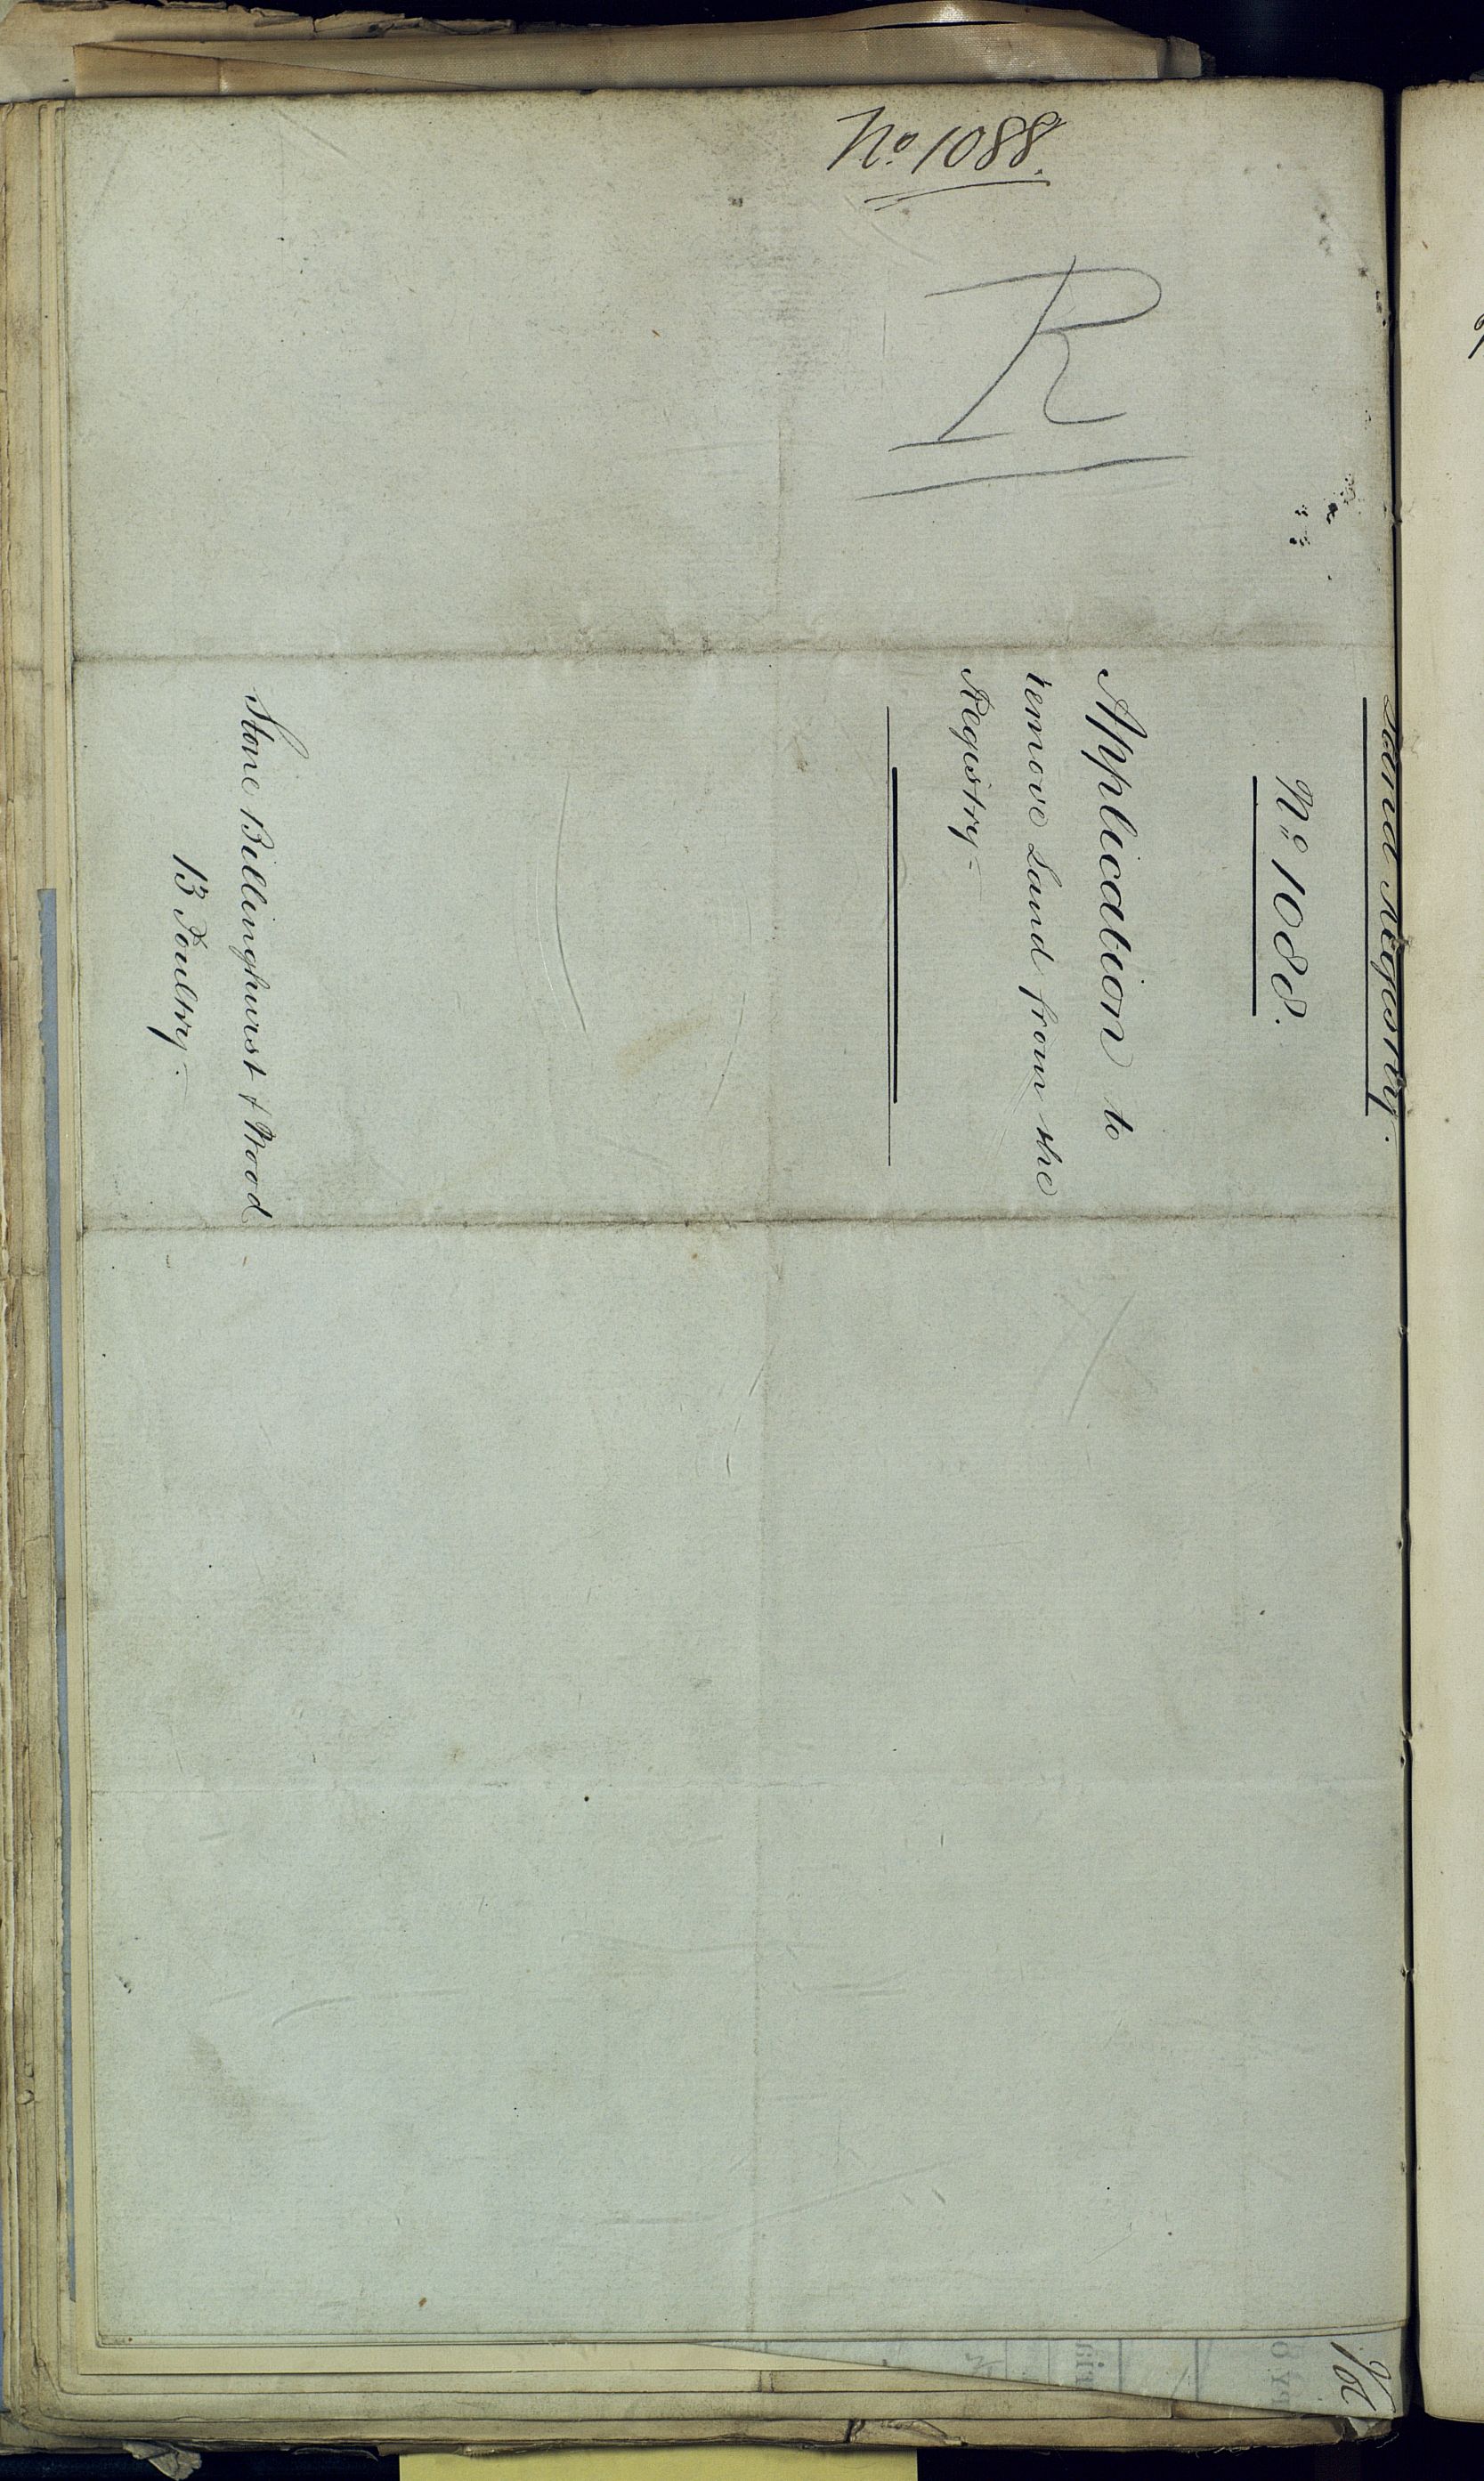 No. 1088.
R
Land Registry.
No. 1088.
Application to
remove Land from the
Registry -
Stone Billinghurst & Wood
13 Poultry -